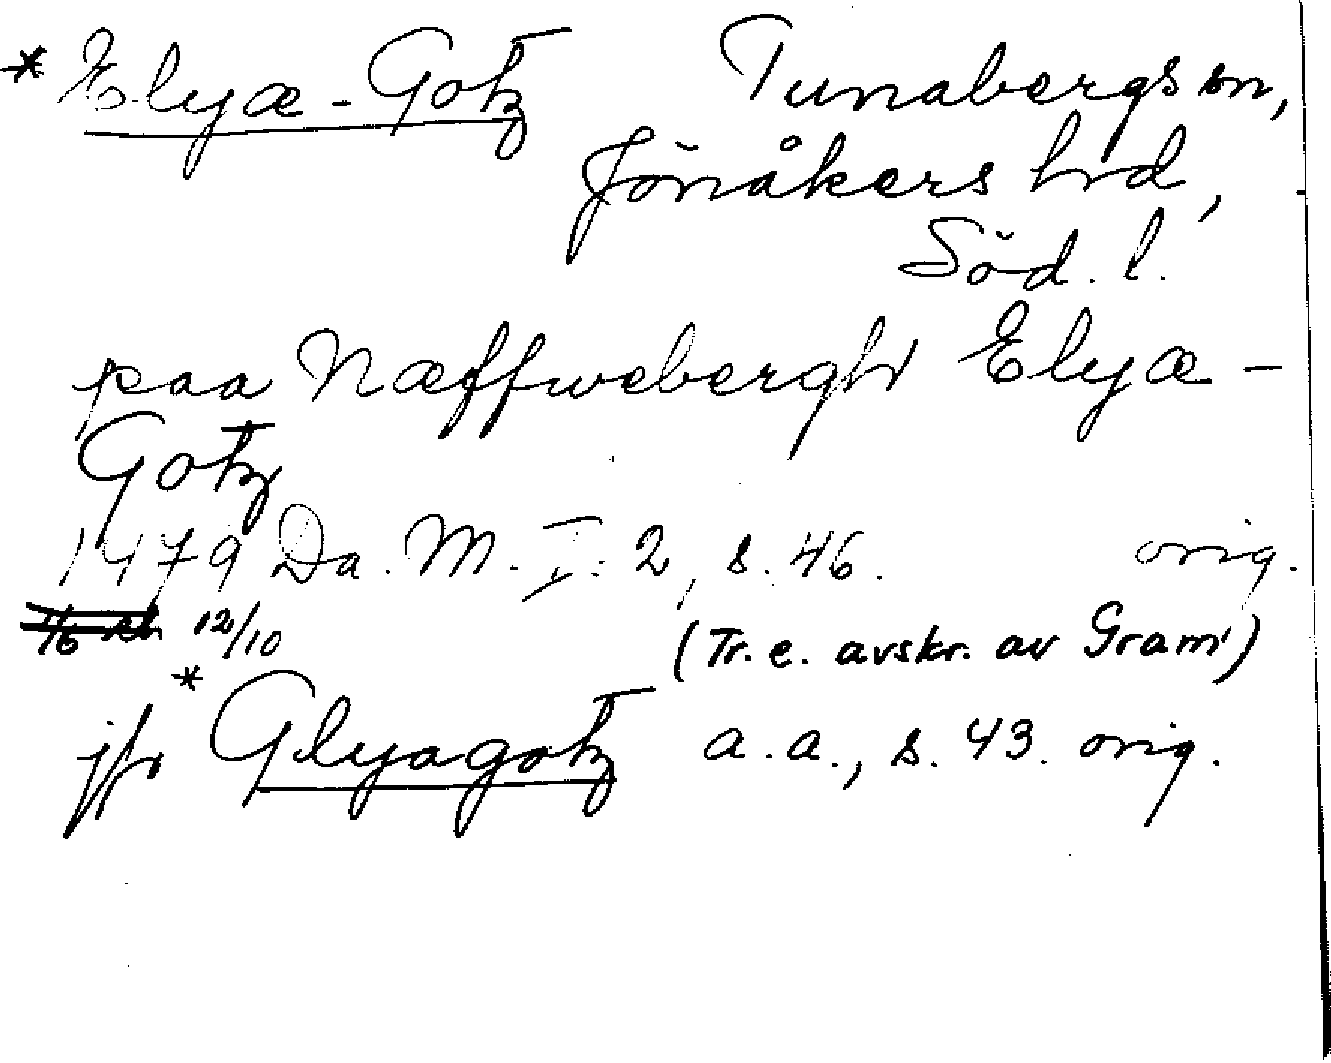 * Elyæ-Gotz Tunabergs sn,
Jönåkers hrd,
Söd. l.
paa Næffwebergh Elyæ-
Gotz
1479 Da. M. I: 2, s. 46. orig.
12/10 (Tr. e. avskr. av Gram)
jfr *Glyagotz a.a., s. 43. orig.